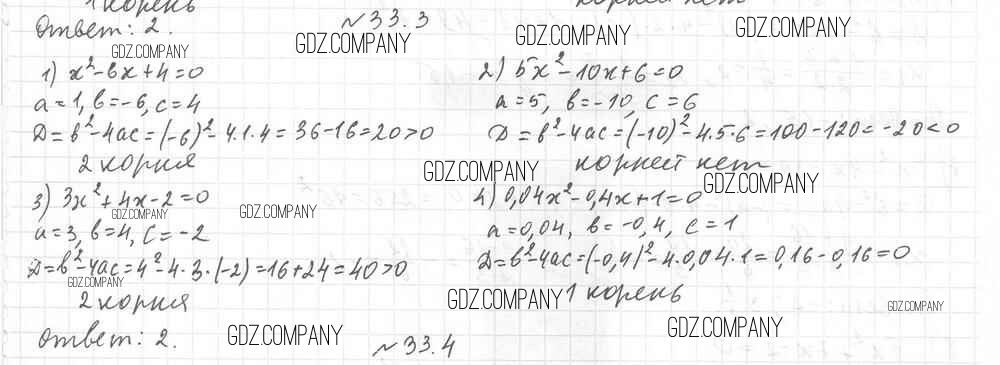 1 корень
корней нет
Ответ: 2.
№33.3
GDZ.COMPANY
GDZ.COMPANY
GDZ.COMPANY
GDZ.COMPANY
1) x²-6x+4=0
a=1, b=-6, c=4
D=b²-4ac=(-6)²-4·1·4=36-16=20>0
2 корня
2) 5x²-10x+6=0
a=5, b=-10, c=6
D=b²-4ac=(-10)²-4·5·6=100-120=-20<0
корней нет
GDZ.COMPANY
GDZ.COMPANY
3) 3x²+4x-2=0
GDZ.COMPANY
GDZ.COMPANY
a=3, b=4, c=-2
D=b²-4ac=4²-4·3·(-2)=16+24=40>0
GDZ.COMPANY
2 корня
4) 0,04x²-0,4x+1=0
a=0,04, b=-0,4, c=1
D=b²-4ac=(-0,4)²-4·0,04·1=0,16-0,16=0
1 корень
GDZ.COMPANY
GDZ.COMPANY
Ответ: 2.
GDZ.COMPANY
GDZ.COMPANY
№33.4